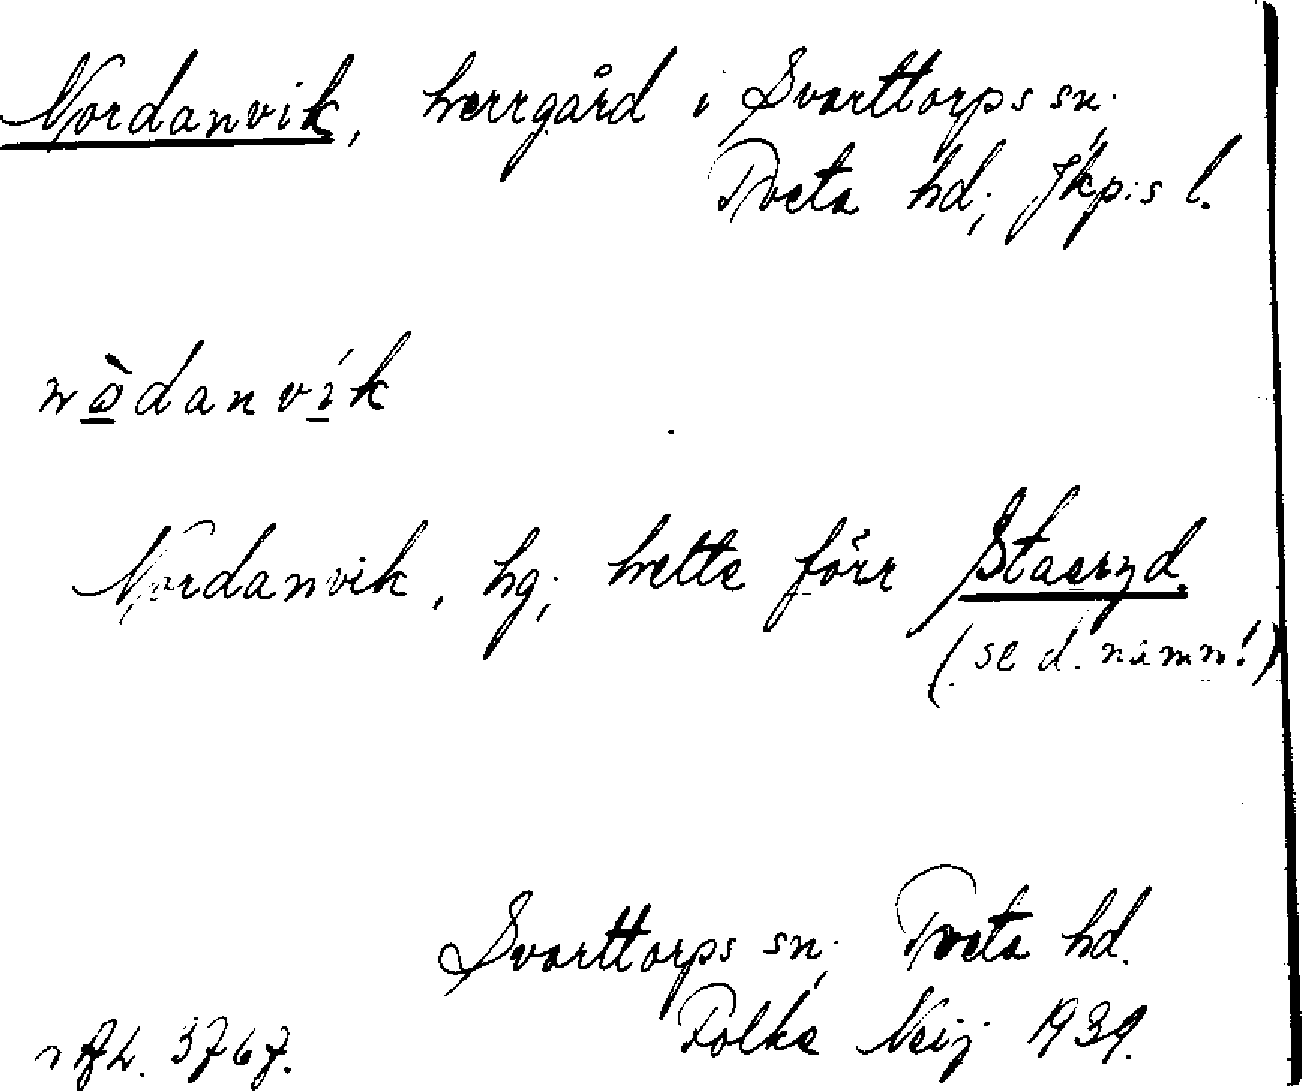 Nordanvik, herrgård i Svarttorps sn.,
Tveta hd., Jkp:s l.
nò̱danvi̱k
Nordanvik, hg., hette förr Staeryd.
(se d. namn!)
Svarttorps sn., Tveta hd.
Folke Neij 1939.
3767.